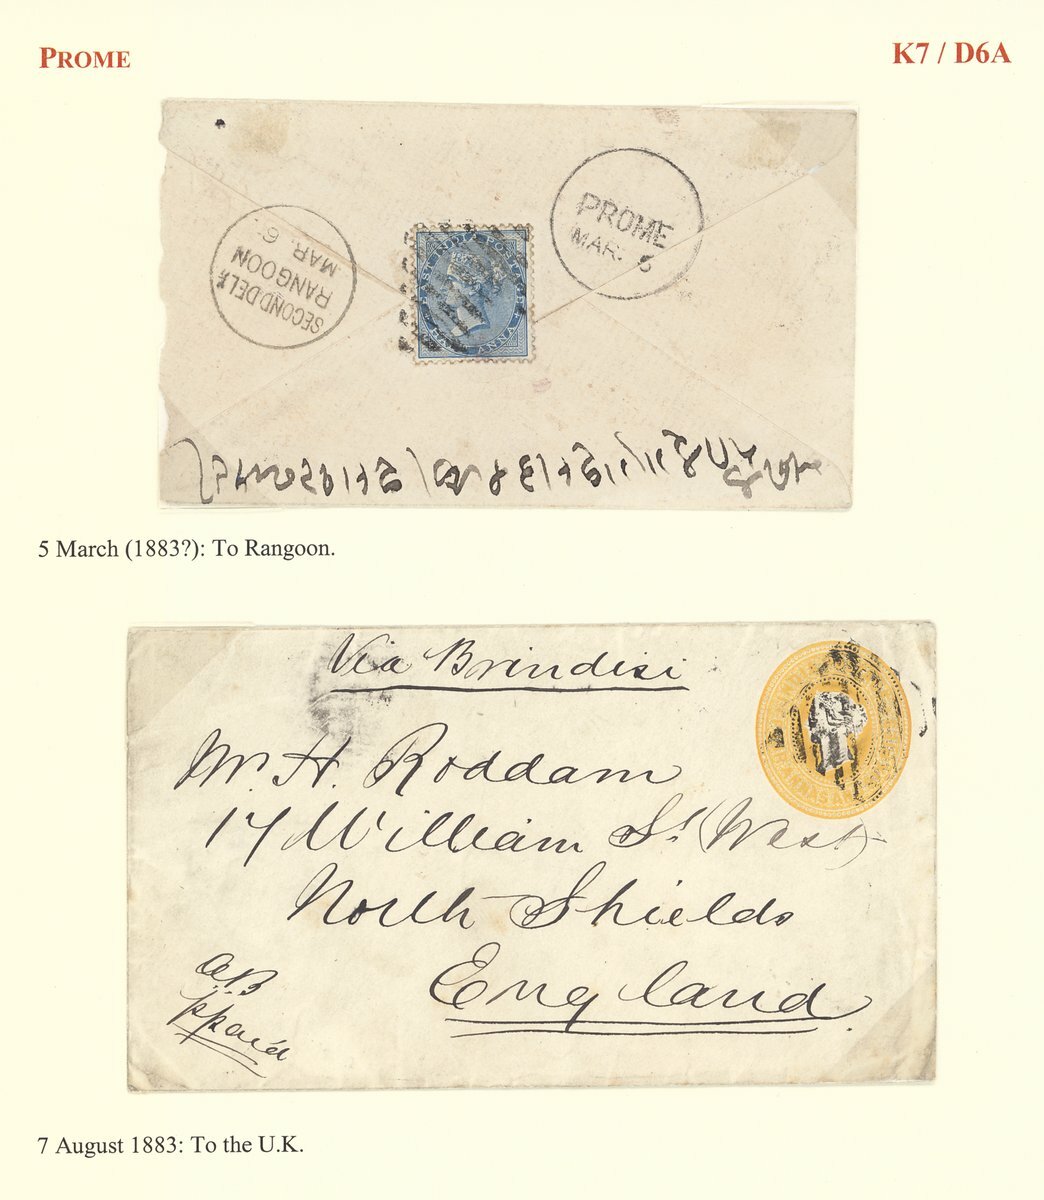 PROME
K7 / D6A
PROME
MAR. 5
SECOND DELY.
RANGOON
MAR. 6
EAST INDIA POSTAGE
HALF ANNA
5 March (1883?): To Rangoon.
Via Brindisi
Mr. H. Roddam
17 William St. (West)
North Shields
England.
7 August 1883: To the U.K.